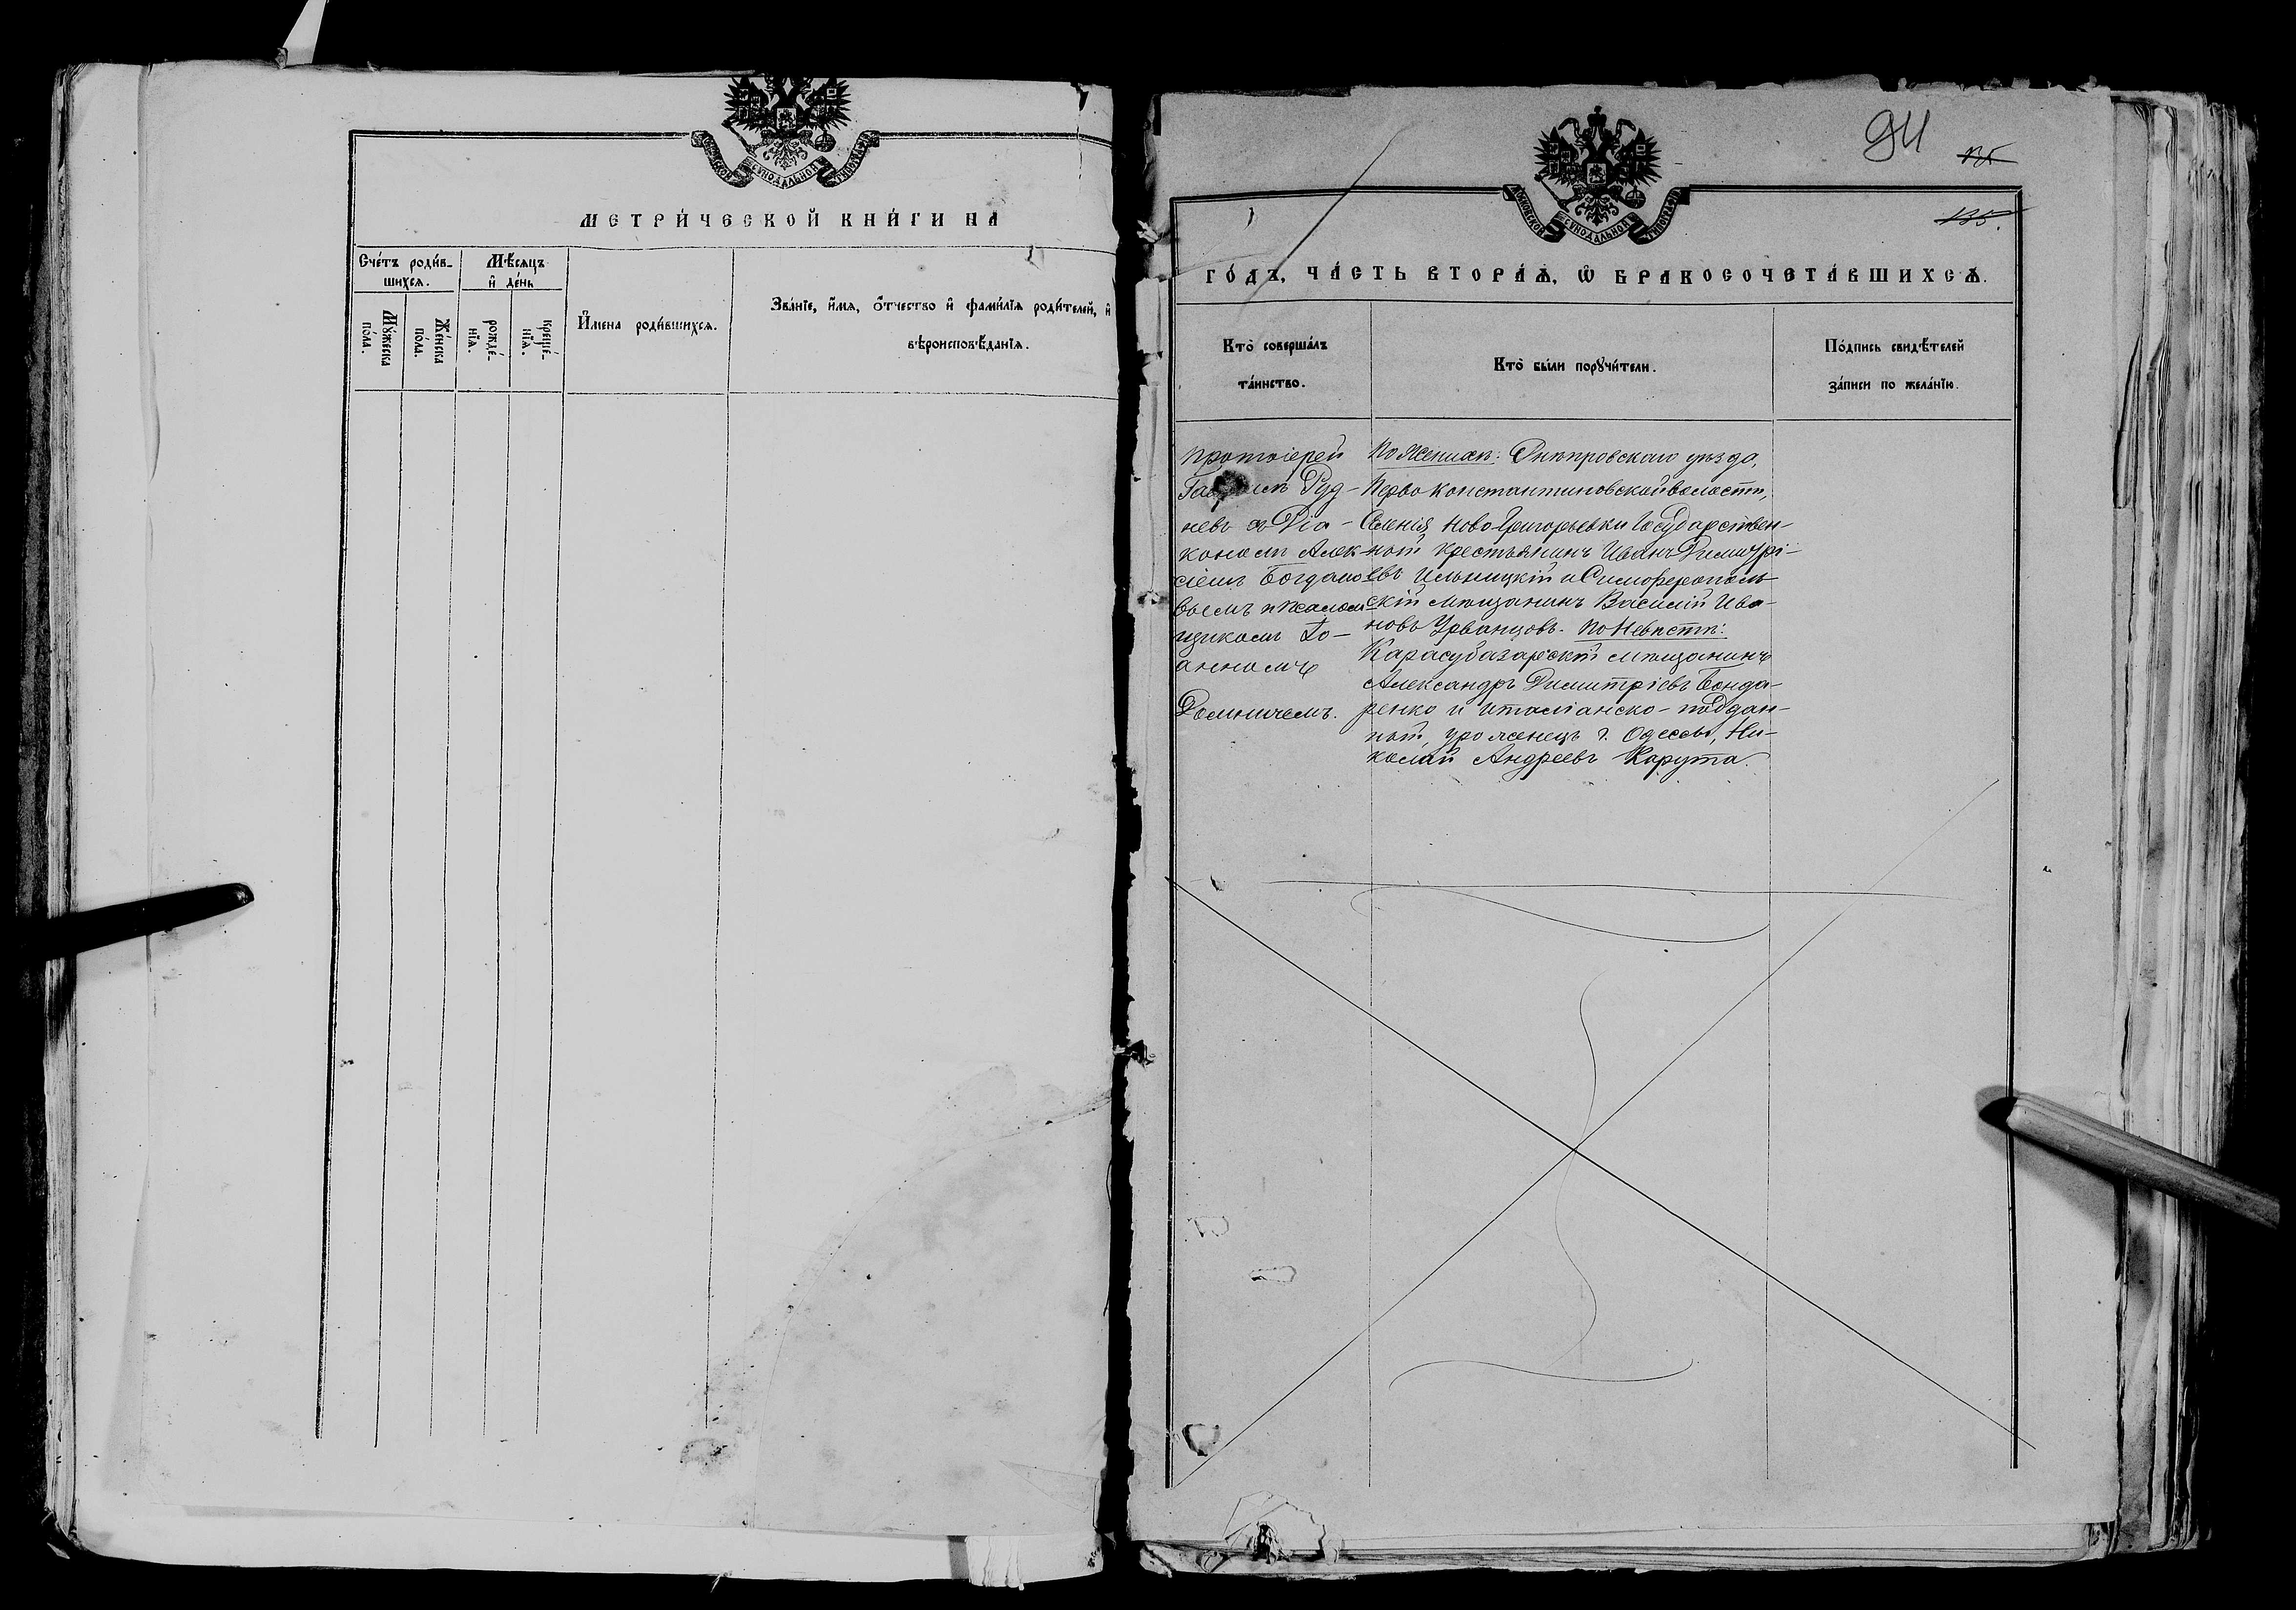 МОСКОВСКОЙ СѴНОДАЛЬНОЙ ТИПОГРАФІИ
МЕТРИ́ЧЕСКОЙ КНИ́ГИ НА
Сче́тъ роди́в-
шихсѧ.
Мѣ́сѧцъ
и҆ де́нь
Мꙋ́жеска
по́ла.
Же́нска
по́ла.
рожде́-
нїѧ.
креще́-
нїѧ.
И҆мена роди́вшихсѧ.
Зва́нїе, и҆́мѧ, ѻ҆́тчество и҆ фами́лїѧ роди́телей, и҆
вѣроисповѣ́данїѧ.
94
135.
МОСКОВСКОЙ СѴНОДАЛЬНОЙ ТИПОГРАФІИ
ГО́ДЪ, ЧА́СТЬ ВТОРА́Ѧ, Ѽ БРАКОСОЧЕТА́ВШИХСѦ.
Кто̀ соверша́лъ
та́инство.
Кто̀ бы́ли порꙋчи́тели.
По́дпись свидѣ́телей
за́писи по жела́нїю.
Протоіерей
Руд-
невъ съ Діа-
кономъ Алек-
сіемъ Богдано
вымъ и Псалом
щикомъ Іо-
анномъ
Доминичемъ.
По Женихѣ: Днѣпровскаго уѣзда,
Перво Константиновской волости,
Селенія Ново-Григорьевки Государствен-
ный крестьянинъ Иванъ Димитрі-
евъ Ильницкій и Симферополь-
скій мѣщанинъ Василій Ива-
новъ Урванцовъ. По Невѣстѣ:
Карасубазарскій мѣщанинъ
Александръ Димитріевъ Бонда-
ренко и италіанско-поддан-
ный, уроженецъ г. Одессы, Ни-
колай Андреевъ Карута.